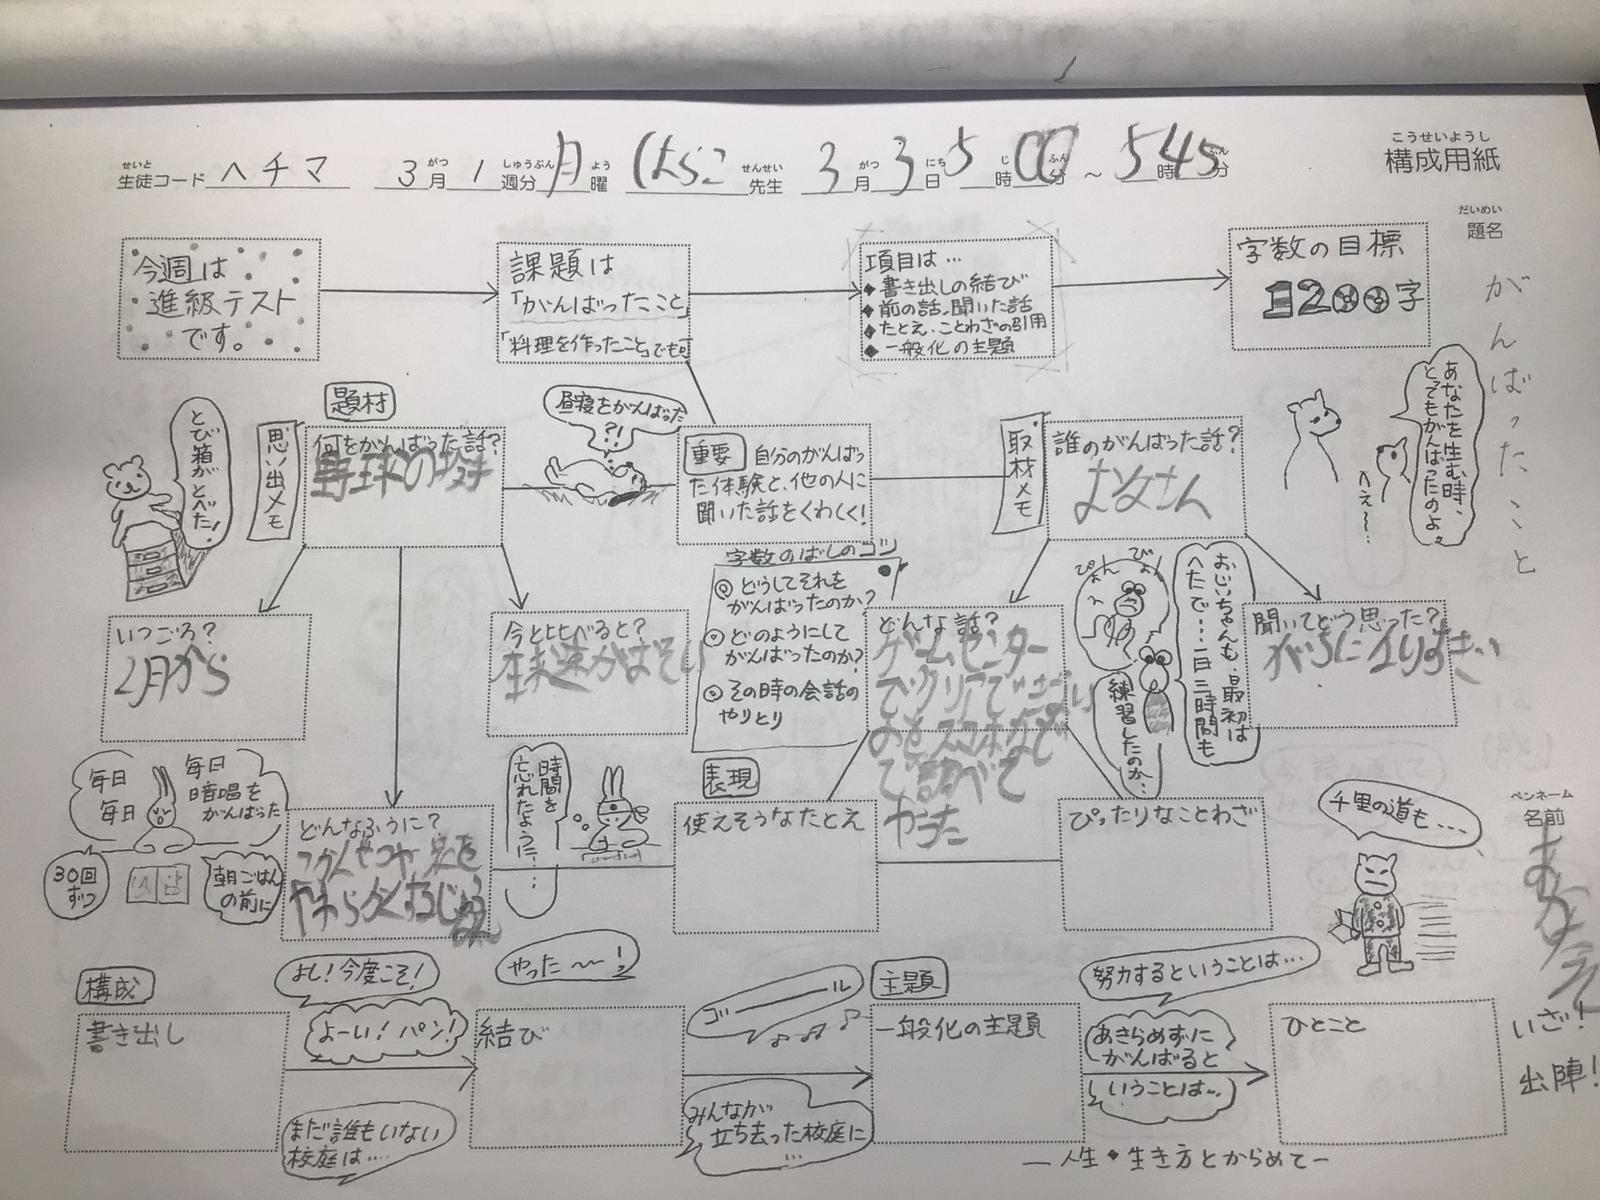 構成用紙
こうせいようし
生徒コード ヘチマ 3月1週分 月曜 先生 3月3日5時00分～5時45分
せいと がつ しゅうぶん よう せんせい がつ にち じ ふん ふん
だいめい
題名
がんばったこと
今週は
進級テスト
です。
課題は
「がんばったこと」
「料理を作ったこと」でも可
項目は…
◆書き出しの結び
◆前の話、聞いた話
◆たとえ・ことわざの引用
◆一般化の主題
字数の目標
1200字
とび箱がとべた!
思い出メモ
題材
何をがんばった話?
昼寝をがんばった
?!
重要
自分のがんばっ
た体験と、他の人に
聞いた話をくわしく!
取材メモ
誰のがんばった話?
おとうさん
あなたを生む時、
とてもがんばったのよ。
へえ～
いつごろ?
2月から
今と比べると?
字数のばしのコツ
◎どうしてそれを
がんばったのか?
◎どのようにして
がんばったのか?
◎その時の会話の
やりとり
どんな話?
ゲームセンター
で調べて
やった
ぴょん
ぴょん
おじいちゃんも、最初は
へたで…一日三時間も
練習したのか…
聞いてどう思った?
毎日
毎日
毎日
暗唱を
がんばった
30回
ずつ
朝ごはん
の前に
どんなふうに?
時間を
忘れたように……
表現
使えそうなたとえ
ぴったりなことわざ
千里の道も…
ペンネーム
名前
構成
書き出し
よし!今度こそ!
よーい!パン!
まだ誰もいない
校庭は…
やった～!
結び
ゴール
みんなが
立ち去った校庭に
…
主題
一般化の主題
努力するということは…
あきらめずに
がんばると
いうことは…
ひとこと
いざ!
出陣!
―人生・生き方とからめて―